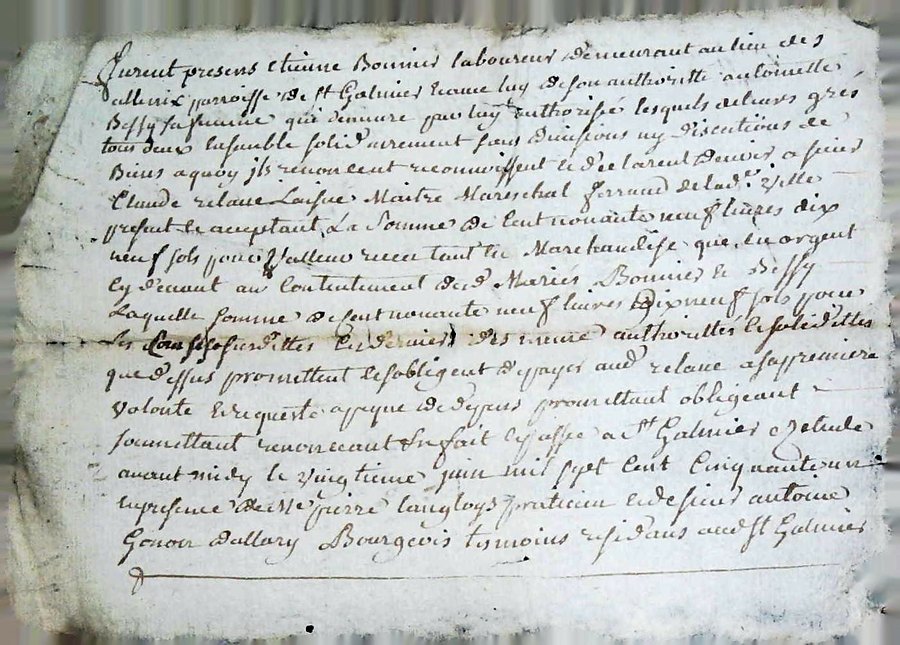 furent presens etienne Bonnier laboureur demeurant au lieu des
allenix parroisse de st Galmier et avec luy de son authoritté antoinette
Bessy sa femme qui demeure par luy authorisée lesquels de leurs grés
tous deux ensemble solidairement sans divisions ny discutiōns de
Biens a quoy ils renoncent reconnoissent et declarent devoir a sieur
Claude relave Laisne Maitre Mareschal ferrand de lad.e Ville
present et acceptant La Somme de Cent nonante neuf livres dix
neuf sols pour Valleur receu tant en Marchandise que en argent
cy devant au Contentement desd Mariés Bonnier et Bessy
Laquelle somme de Cent nonante neuf livres Dix neuf sols pour
les Causes susdittes les derniers des meme authorittés et solidittes
que dessus promettent et s'obligent de payer aud relave a sa premiere
volonté et requeste a peyne de depans promettant obligeant
soumettant renonceant &c fait et passé a st Galmier Etude
avant midy le vingtieme juin mil sept cent cinquante un
en presence de Me pierre langloys praticien et de sieur antoine
Gonon d'allary Bourgeois tesmoins residans aud st Galmier